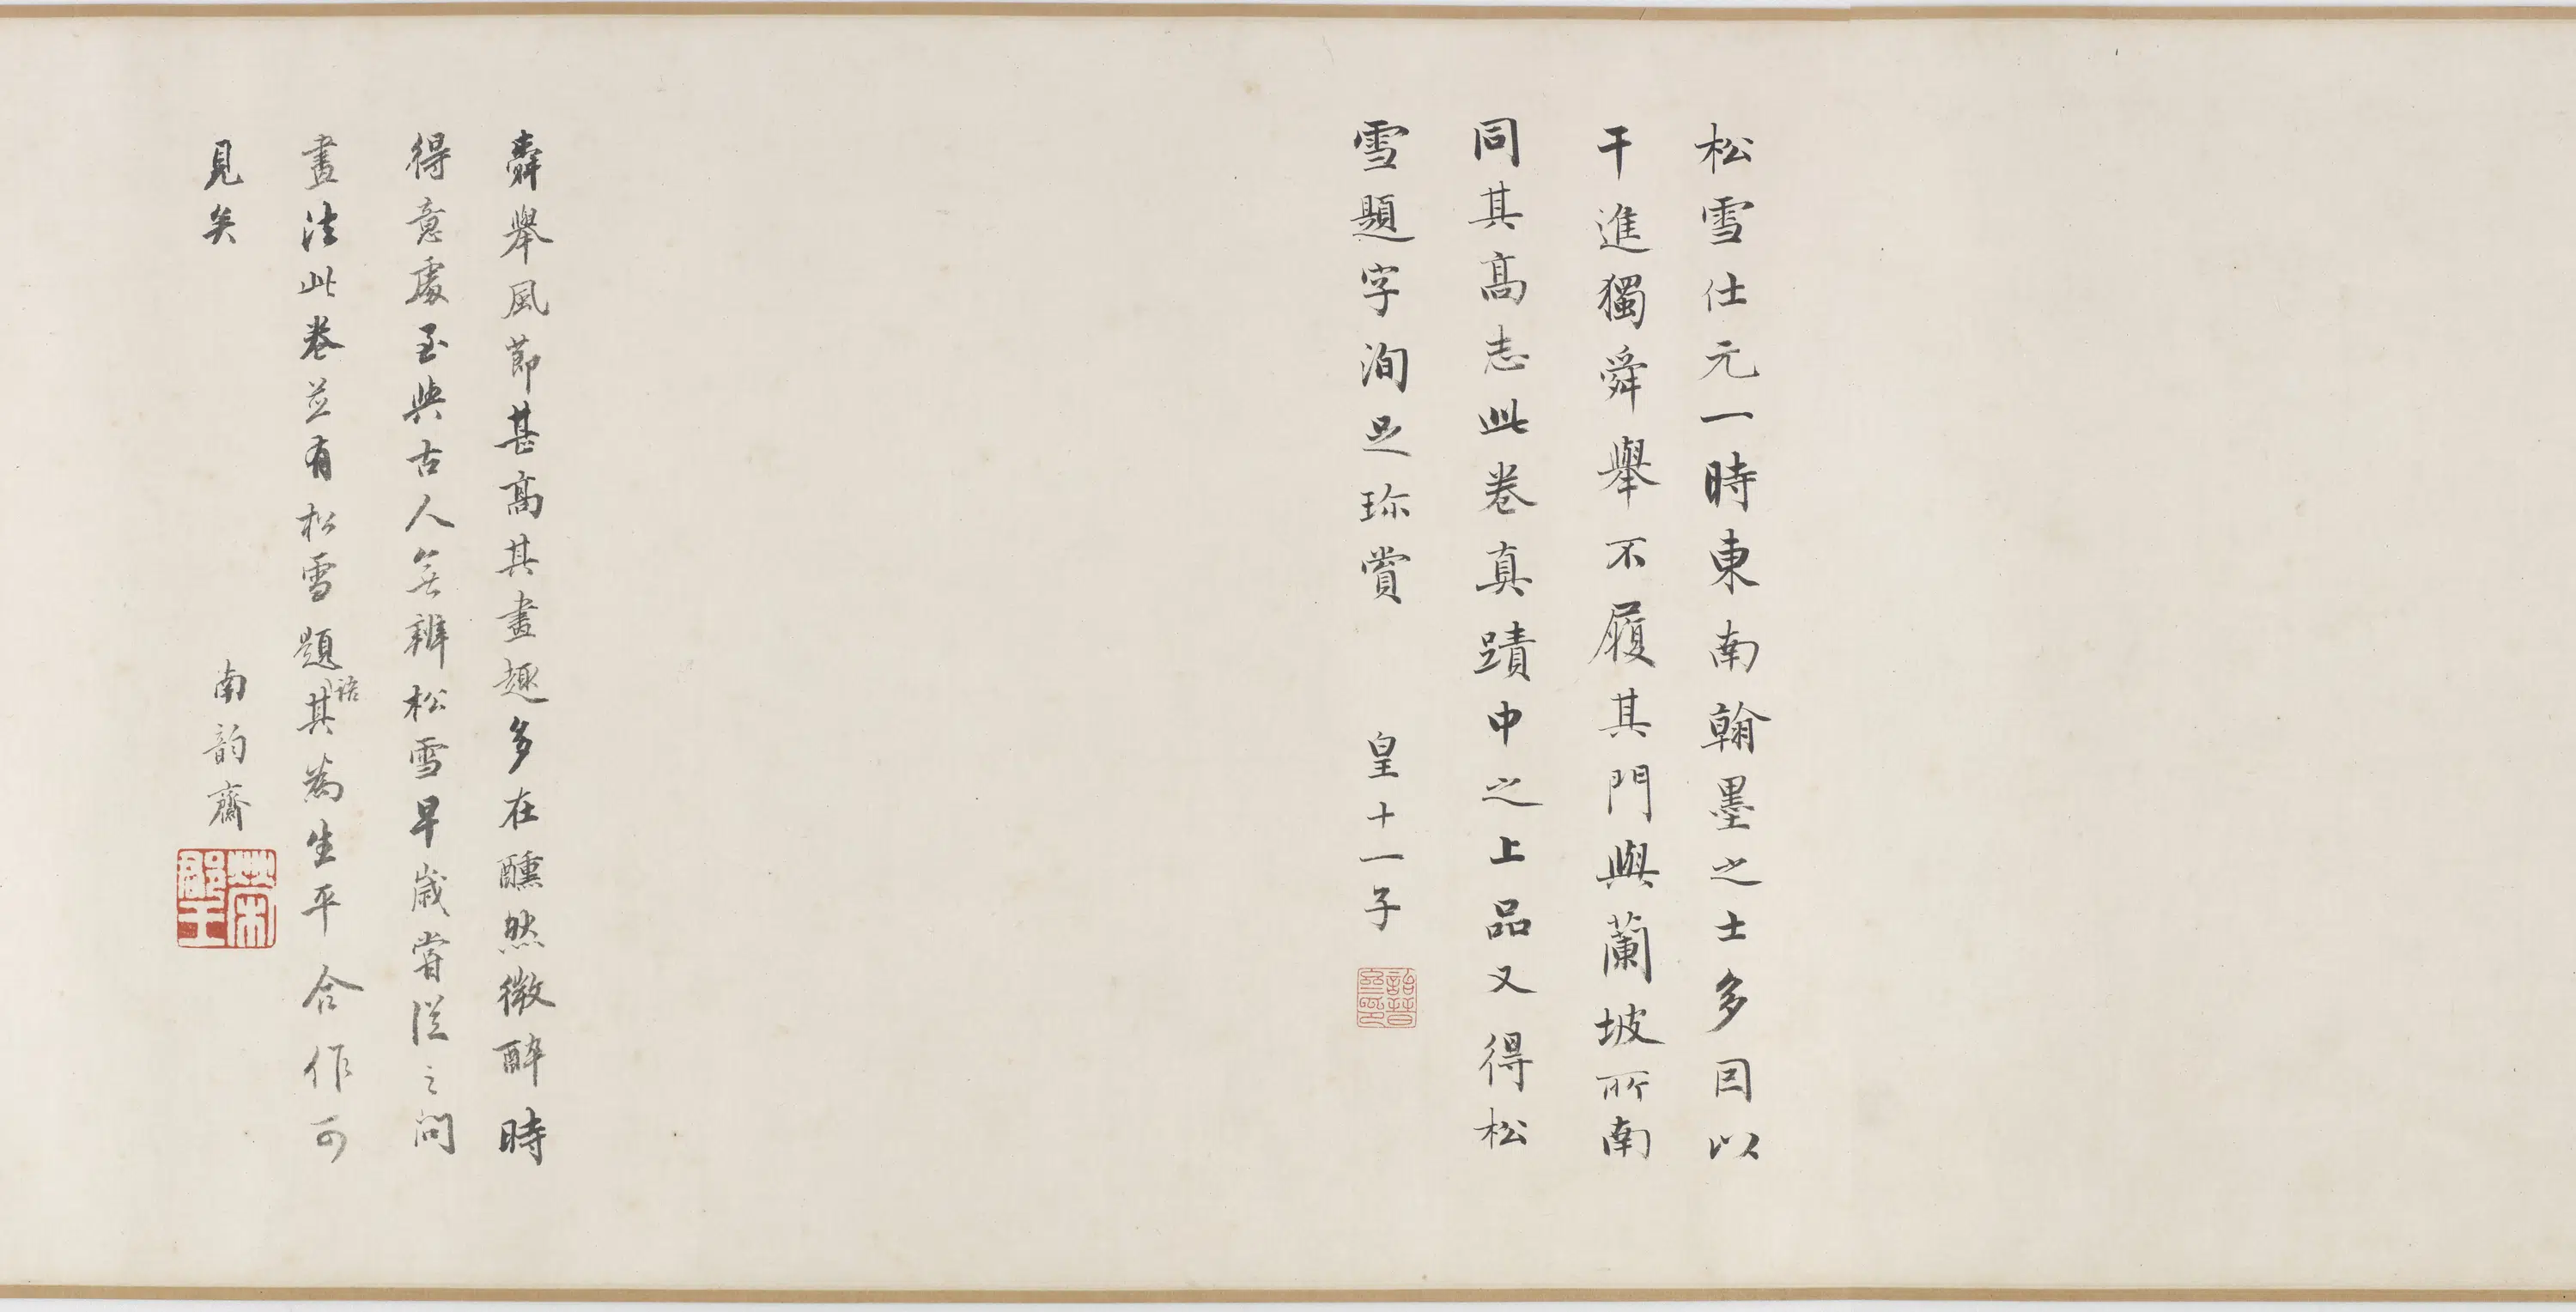 松雪仕元一時東南翰墨之士多因以
干進獨舜舉不履其門與蘭坡所南
同其高志此卷真蹟中之上品又得松
雪題字洵足珎賞
皇十一子
詒晉齋印
舜舉風節甚高其畫趣多在醺然微醉時
得意處至與古人無辨松雪早歲嘗從之問
畫法此卷並有松雪題語其為生平合作可
見矣
南韵齋
榮郡王